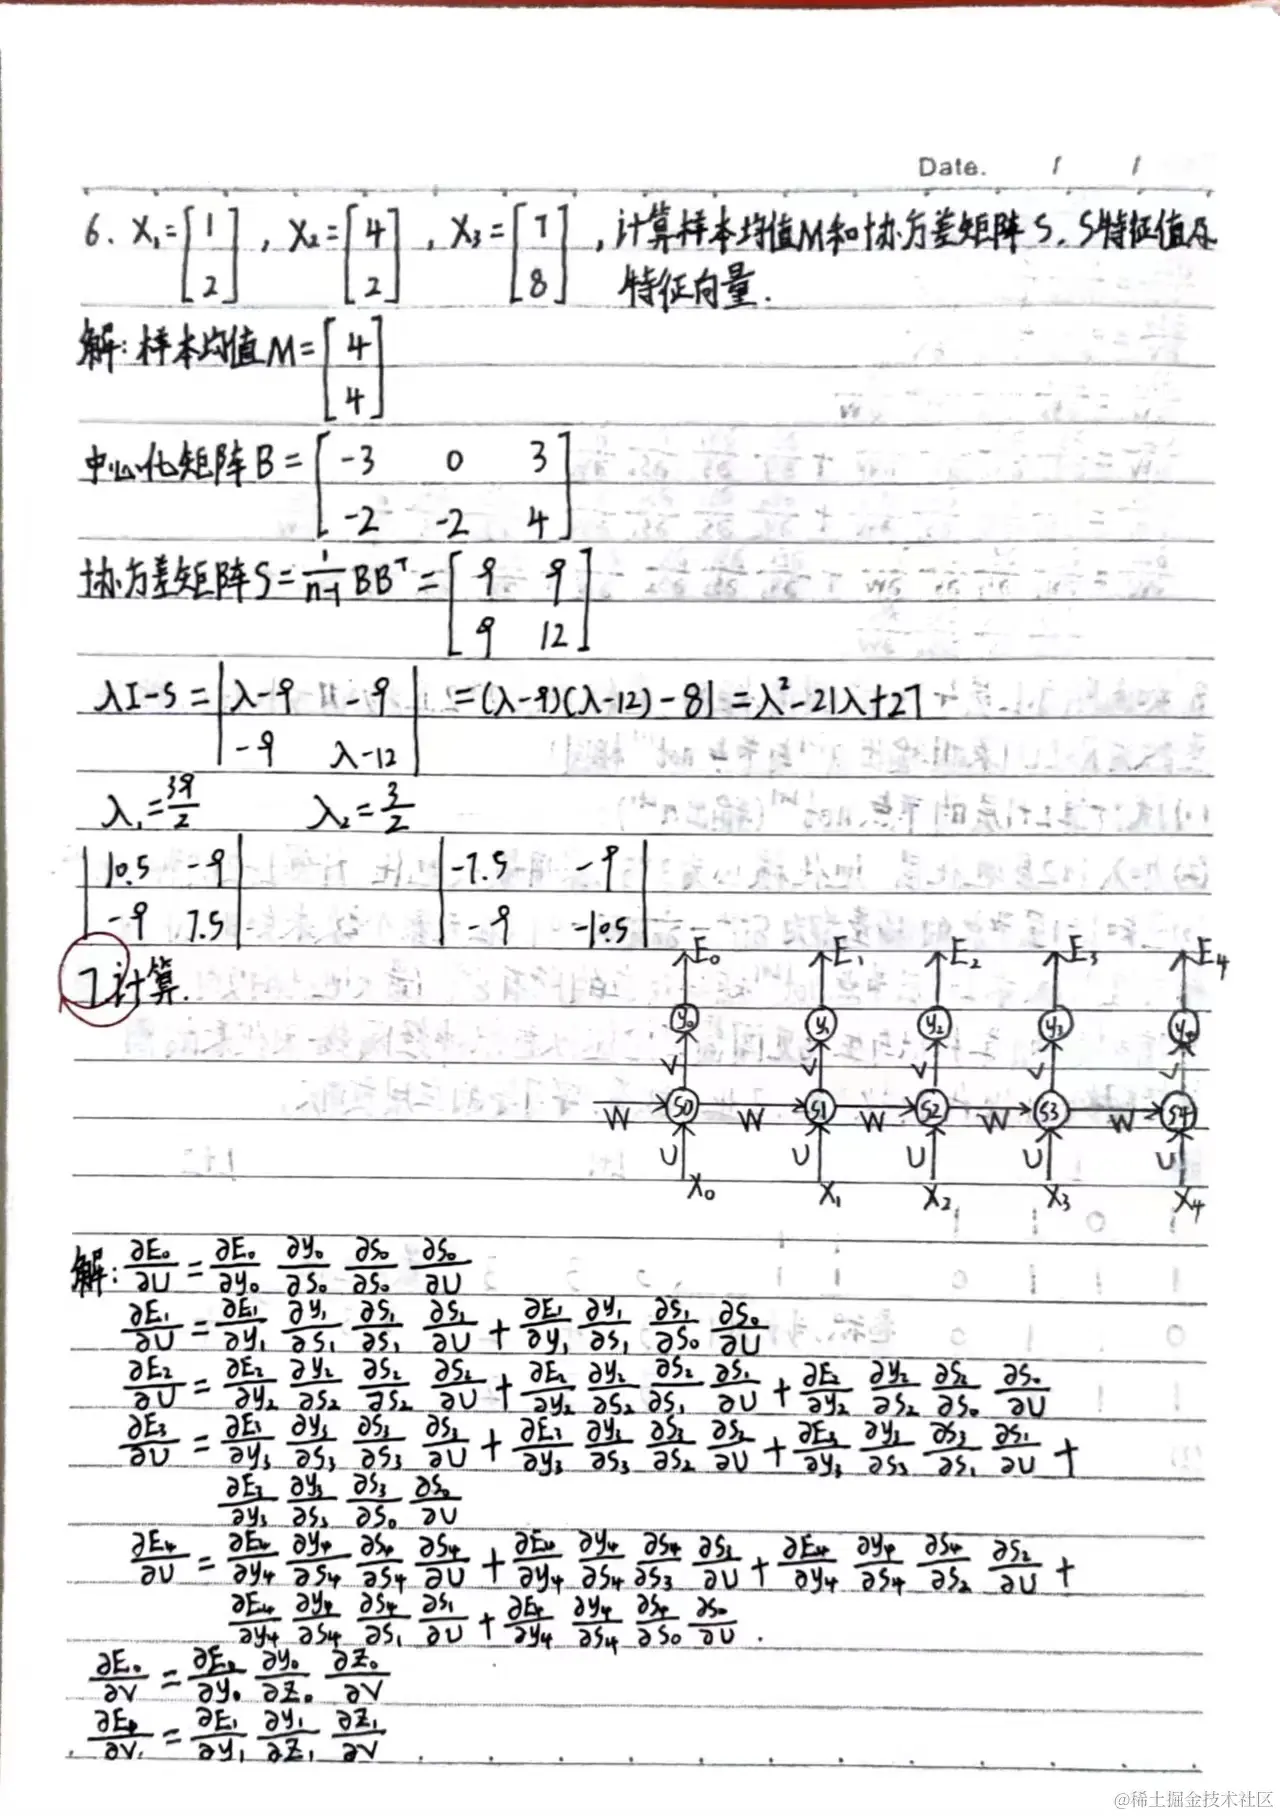 Date. / /
6. X₁=[1 2], X₂=[4 2], X₃=[7 8], 计算样本均值M和协方差矩阵S. S特征值及
特征向量.
解: 样本均值M=[4 4]
中心化矩阵B=[-3 0 3
-2 -2 4]
协方差矩阵S=1/(n-1) BBᵀ=[9 9
9 12]
λI-S=|λ-9 -9
-9 λ-12| =(λ-9)(λ-12)-81=λ²-21λ+27
λ₁=39/2 λ₂=3/2
|10.5 -9 |-7.5 -9
-9 7.5| -9 -10.5|
7 计算.
E₀ E₁ E₂ E₃ E₄
y₀ y₁ y₂ y₃ y₄
V V V V V
W S0 W S1 W S2 W S3 W S4
U U U U U
X₀ X₁ X₂ X₃ X₄
解: ∂E₀/∂U=∂E₀/∂y₀ ∂y₀/∂S₀ ∂S₀/∂S₀ ∂S₀/∂U
∂E₁/∂U=∂E₁/∂y₁ ∂y₁/∂S₁ ∂S₁/∂S₁ ∂S₁/∂U+∂E₁/∂y₁ ∂y₁/∂S₁ ∂S₁/∂S₀ ∂S₀/∂U
∂E₂/∂U=∂E₂/∂y₂ ∂y₂/∂S₂ ∂S₂/∂S₂ ∂S₂/∂U+∂E₂/∂y₂ ∂y₂/∂S₂ ∂S₂/∂S₁ ∂S₁/∂U+∂E₂/∂y₂ ∂y₂/∂S₂ ∂S₂/∂S₀ ∂S₀/∂U
∂E₃/∂U=∂E₃/∂y₃ ∂y₃/∂S₃ ∂S₃/∂S₃ ∂S₃/∂U+∂E₃/∂y₃ ∂y₃/∂S₃ ∂S₃/∂S₂ ∂S₂/∂U+∂E₃/∂y₃ ∂y₃/∂S₃ ∂S₃/∂S₁ ∂S₁/∂U+
∂E₃/∂y₃ ∂y₃/∂S₃ ∂S₃/∂S₀ ∂S₀/∂U
∂E₄/∂U=∂E₄/∂y₄ ∂y₄/∂S₄ ∂S₄/∂S₄ ∂S₄/∂U+∂E₄/∂y₄ ∂y₄/∂S₄ ∂S₄/∂S₃ ∂S₃/∂U+∂E₄/∂y₄ ∂y₄/∂S₄ ∂S₄/∂S₂ ∂S₂/∂U+
∂E₄/∂y₄ ∂y₄/∂S₄ ∂S₄/∂S₁ ∂S₁/∂U+∂E₄/∂y₄ ∂y₄/∂S₄ ∂S₄/∂S₀ ∂S₀/∂U.
∂E₀/∂V=∂E₀/∂y₀ ∂y₀/∂Z₀ ∂Z₀/∂V
/∂V=∂E₁/∂y₁ ∂y₁/∂Z₁ ∂Z₁/∂V
@稀土掘金技术社区